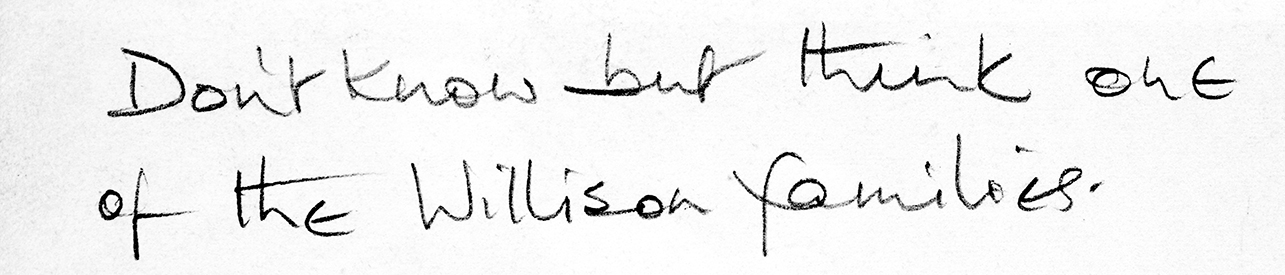 Don't know but think one
of the Willison families.